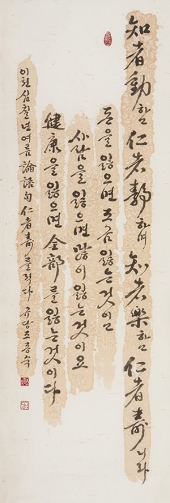 知者動하고 仁者靜하며 知者樂하고 仁者壽니라
돈을 잃으면 조금 잃는것이고
사람을 잃으면 많이 잃는것이요
健康을 잃으면 全部를 잃는것이다
이천십칠년여름 論語句 仁者壽를 적다